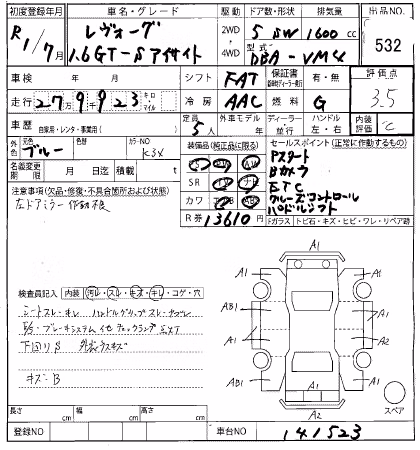 初度登録年月 車名・グレード 駆動 ドア数・形状 排気量 出品NO.
R 1/7月 レヴォーグ 2WD 5 SW 1600 cc 532
1.6GT-Sアイサイト 4WD 型式 DBA-VM4
車検 年 月 シフト FAT 保証書 有・無 評価点
走行 27千923 キロ・マイル 冷房 AAC 燃料 G 3.5
車歴 自家用・レンタ・事業用( ) 定員 5人 外車モデル年 ディーラー 並行 ハンドル 左・右 内装評価 C
外色 元色 ブルー 色替 カラーNO K3X 装備品(純正品に限る) セールスポイント(正常に作動するもの)
名義変更期限 月 日 迄 積載 t
Pスタート
Bカメラ
ETC
クルーズコントロール
パドルシフト
SR
カワ AB
R券 13610円
注意事項(欠品・修復・不具合箇所および状態)
左ドアミラー作動不良
Fガラス トビ石・キズ・ヒビ・ワレ・リペア跡
検査員記入 内装 汚レ・スレ・キズ・キレ・コゲ・穴
シートスレ・キレ ハンドルグリップスレ
下回りS
キズ・B
A1
A1 A1
AB1 A2
A1 A2
AB1 A1
A1
A2
スペア
長さ cm 幅 cm 高さ cm
登録NO 車台NO 141523